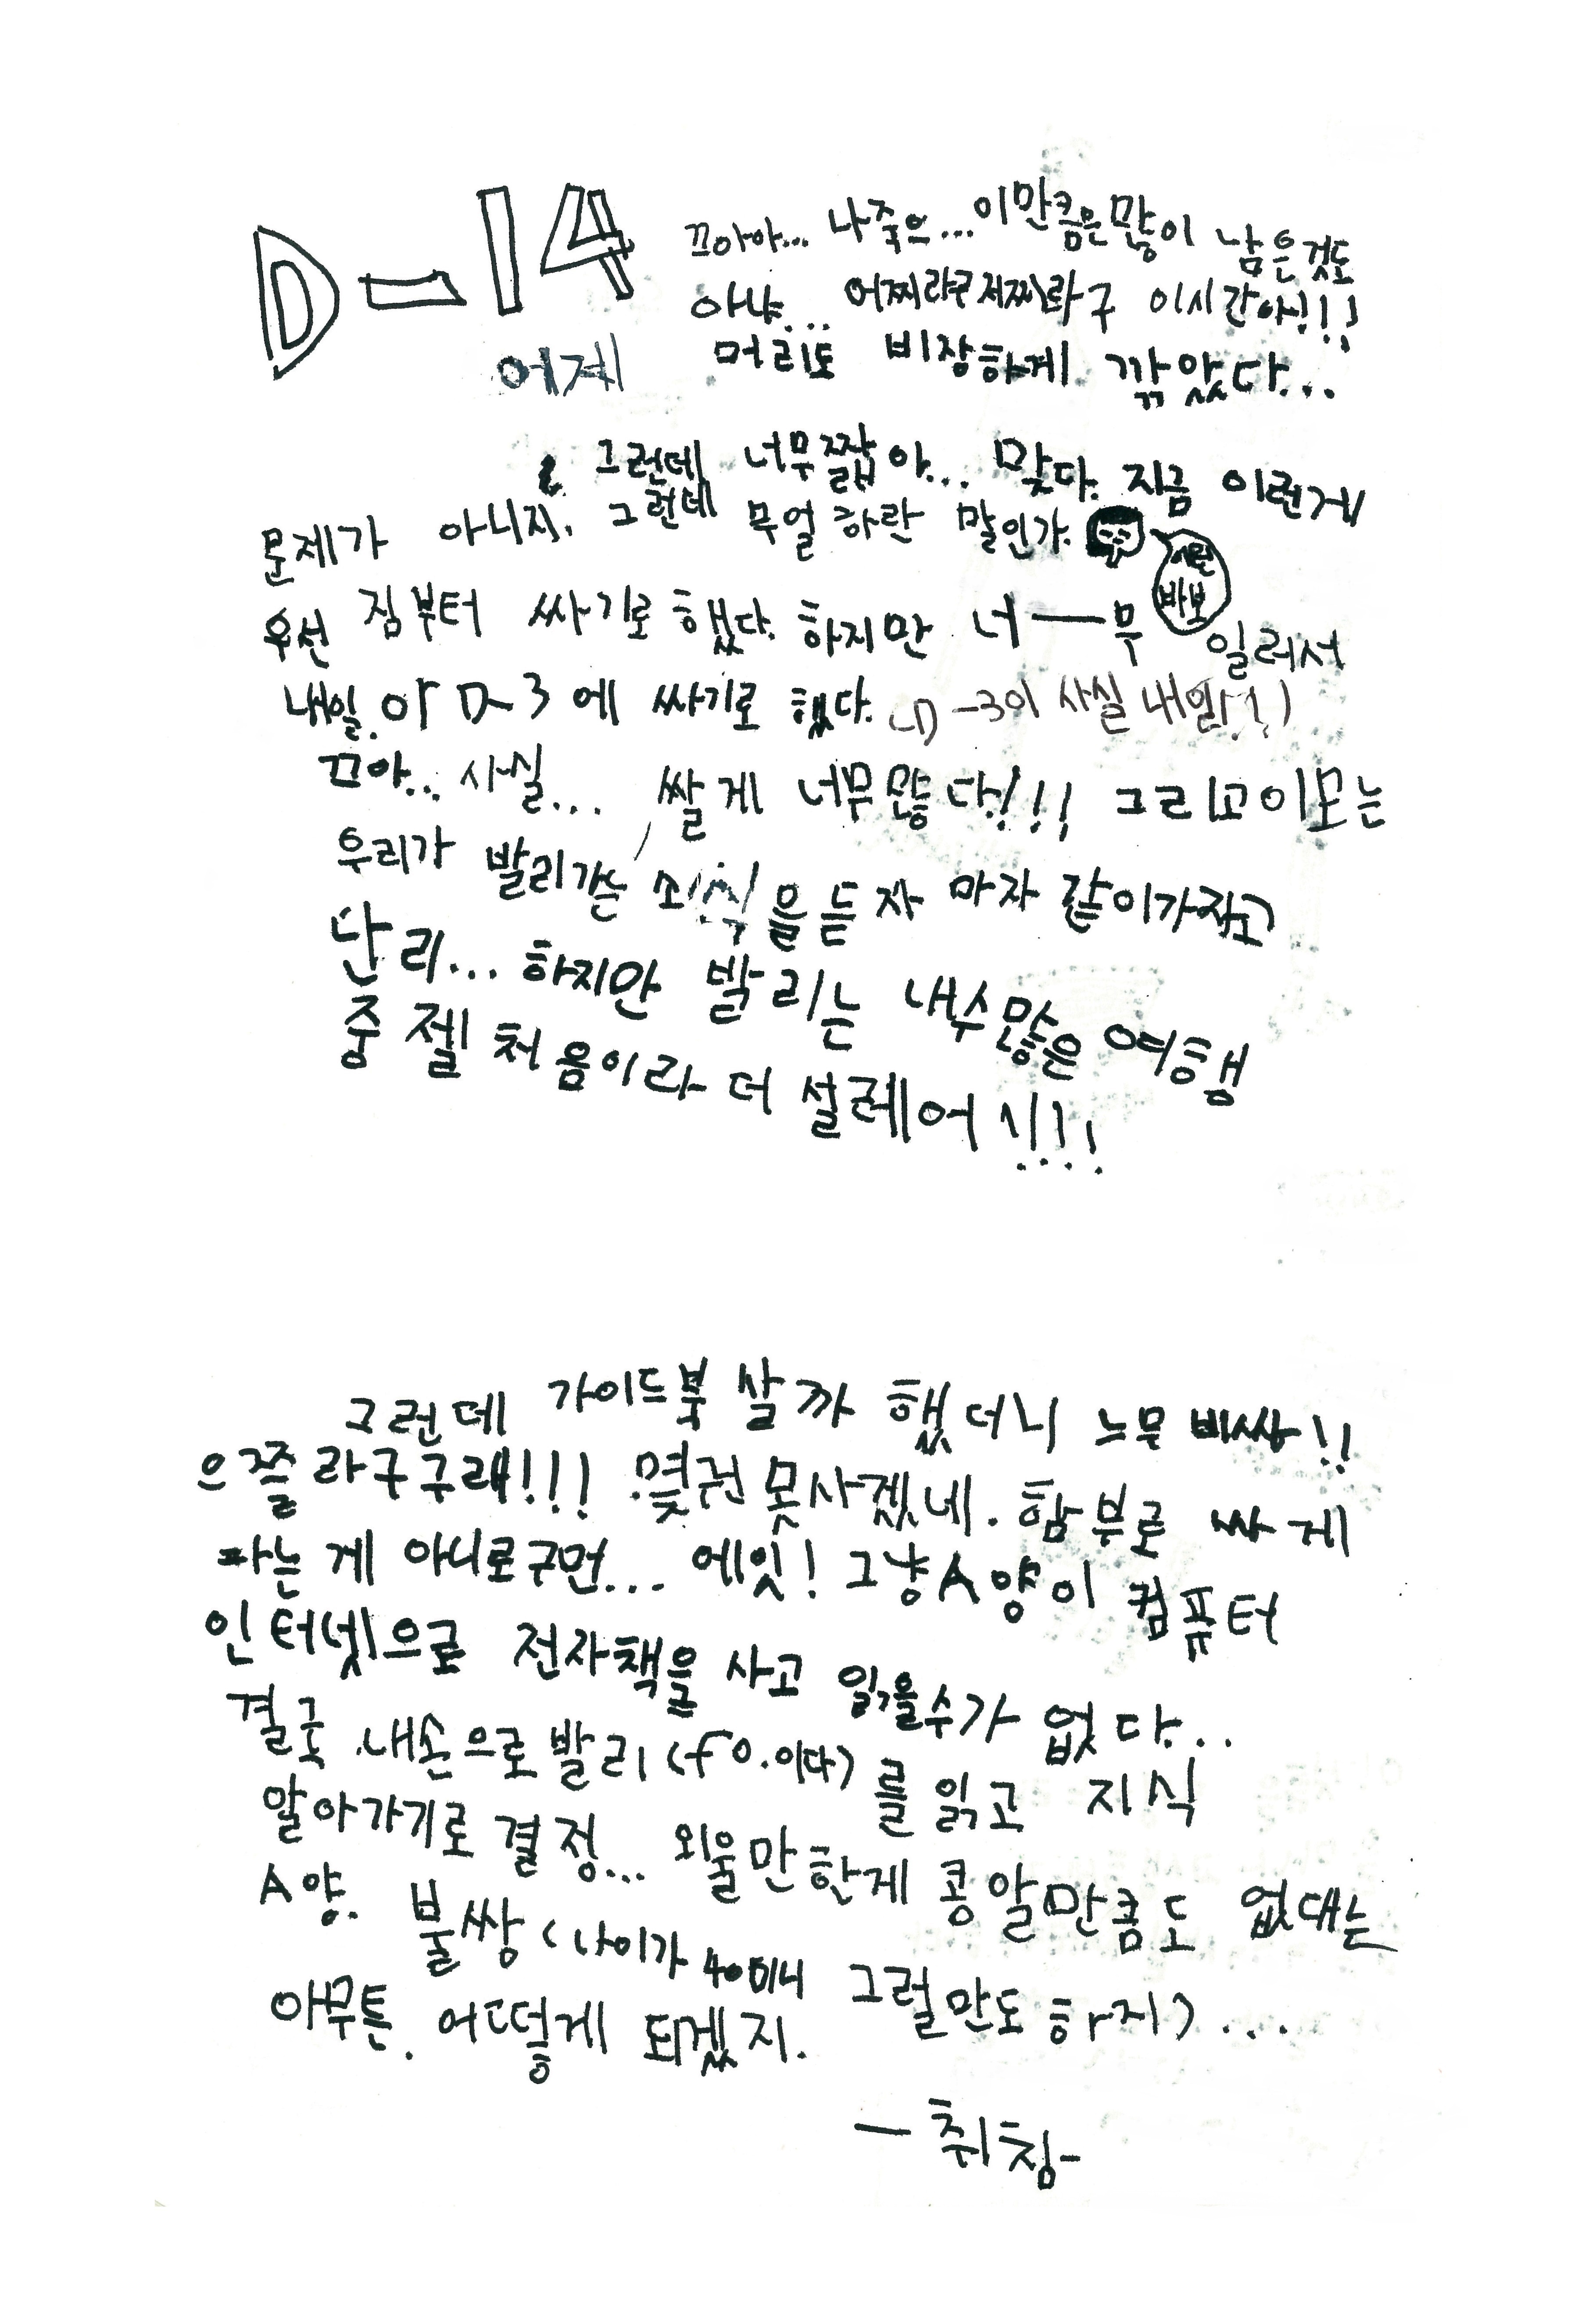 D-14
끄아아... 나죽으... 이만큼은많이 남은것도
아냐... 어찌라구저찌라구 이시간아!!!
어제 머리도 비장하게 깎았다...
그런데 너무짧아... 맞다. 지금 이런게
문제가 아니지. 그런데 무얼 하란 말인가.
이런
바보
우선 짐부터 싸기로 했다. 하지만 너──무 일러서
내일.아 D-3에 싸기로 했다. (D-3이 사실 내일!!)
끄아... 사실... 쌀게 너무많다!!! 그리고이모는
우리가 발리가는 소식을듣자 마자 같이가자고
난리... 하지만 발리는 내수많은 여행
중 젤 처음이라 더 설레어!!!!
그런데 가이드북 살까 했더니 느무 비싸!!
으쯜라구구래!!! 몇권못사겠네. 함부로 싸게
파는 게 아니로구먼... 에잇! 그냥A양이 컴퓨터
인터넷으로 전자책을 사고 읽을수가 없다...
결국 내손으로 발리(fo.이다)를 읽고 지식
알아가기로 결정... 외울만한게 콩알만큼도 없대는
A양. 불쌍(나이가 40이니 그럴만도하지)...
아무튼. 어떻게 되겠지.
-취침-